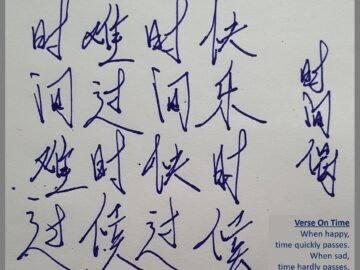 时间偈
快乐时候
时间快过
难过时候
时间难过
Verse On Time
When happy,
time quickly passes.
When sad,
time hardly passes.